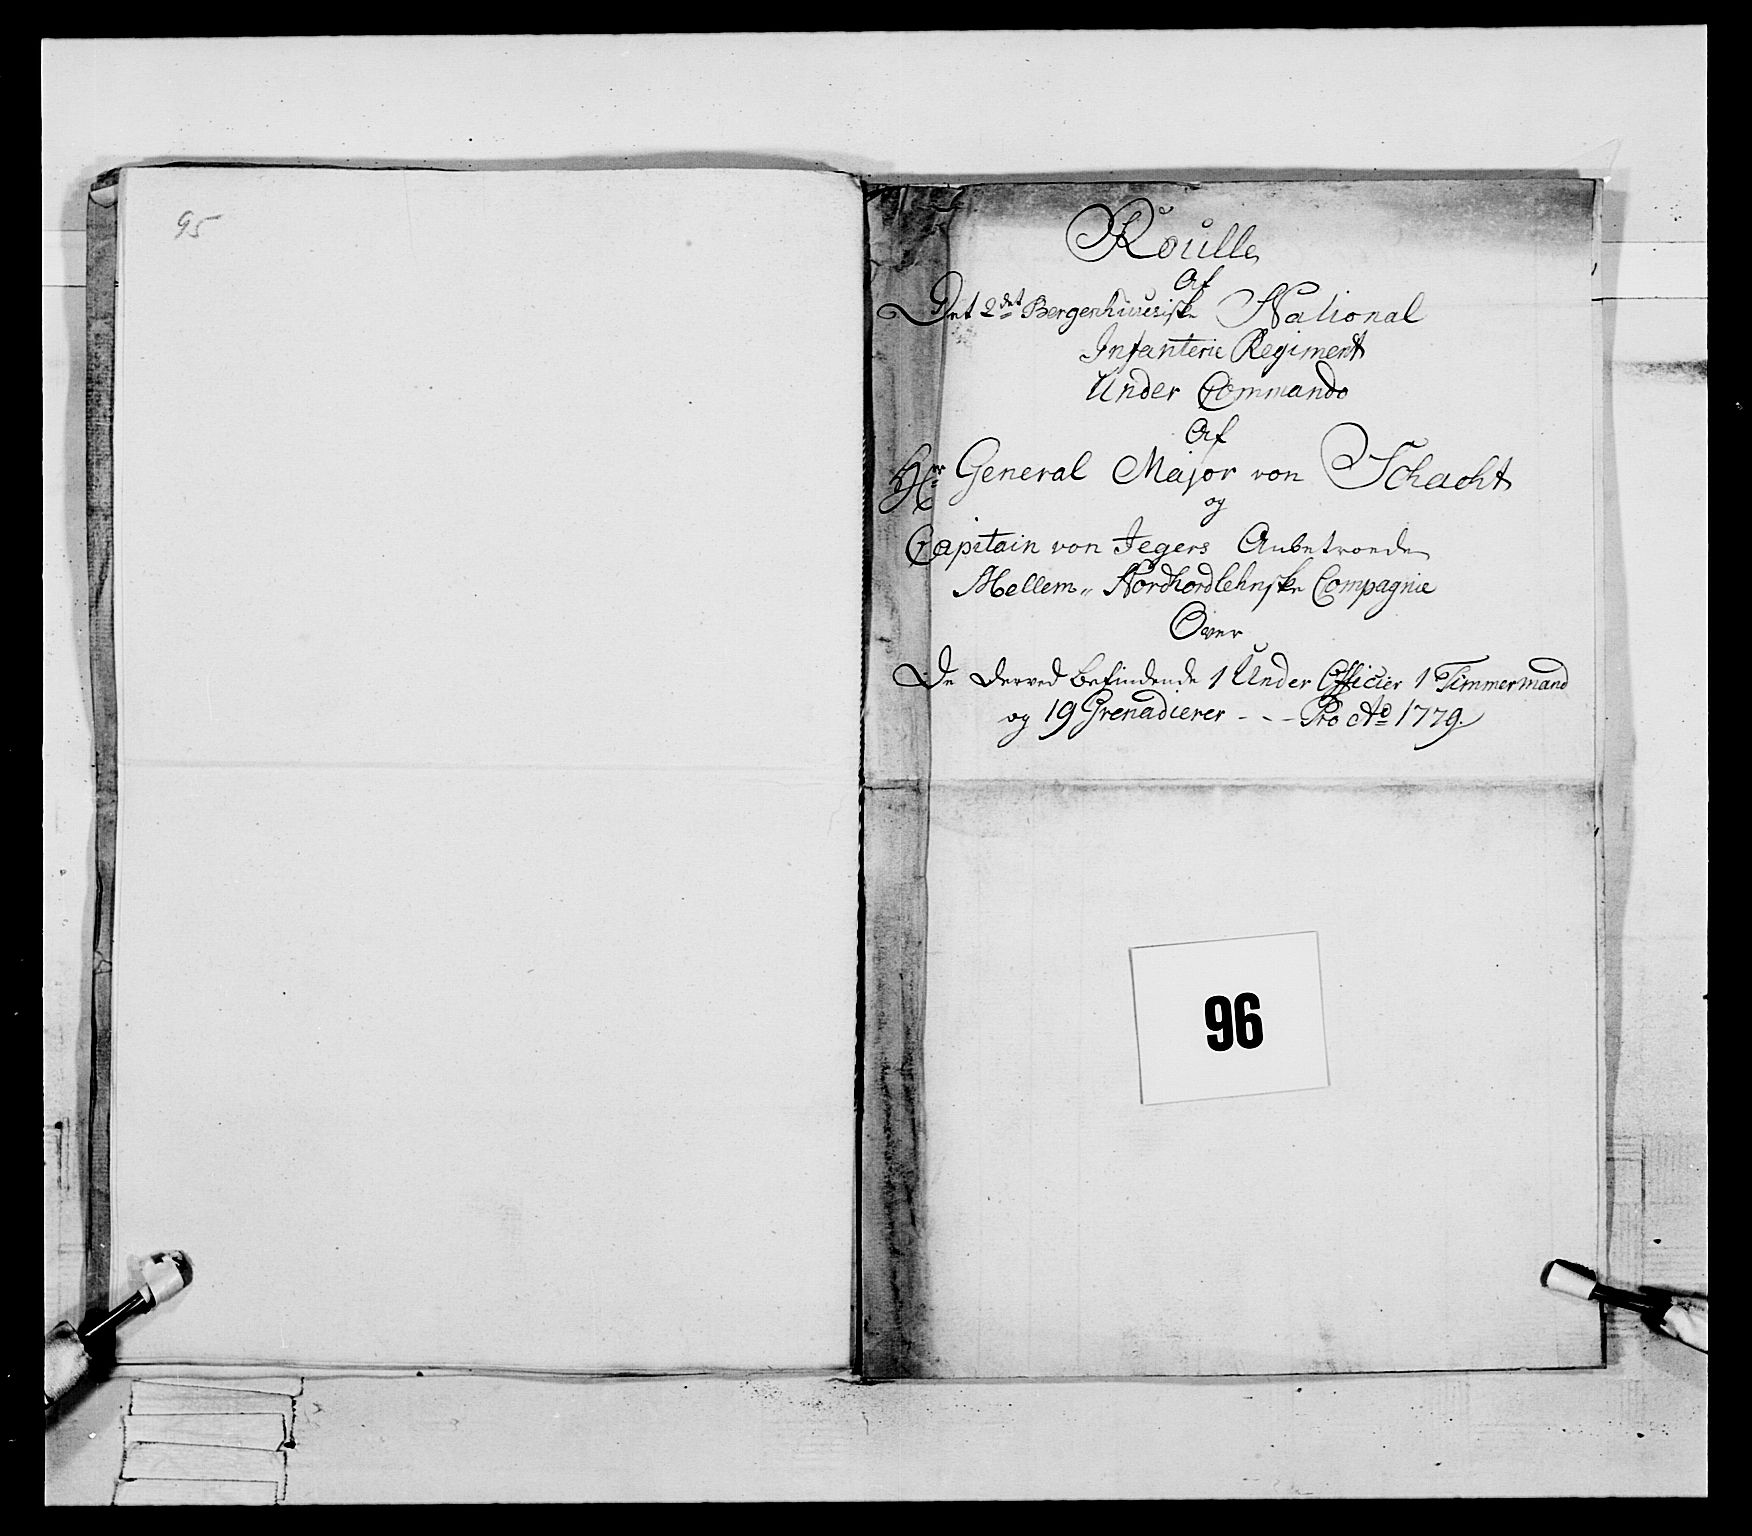 95
Roulle
Af
Det 2det Bergenhuusiske National
Infanterie Regiment
Under Commando
Af
Hr General Major von Schacht
og
Capitain von Jegers Anbetroede
Mellem„ Nordhordlehnske Compagnie
Over
De derved befindende 1 Under Officier 1 Timmermand
og 19 Grenadierer - - - Pro Ao 1779.
96